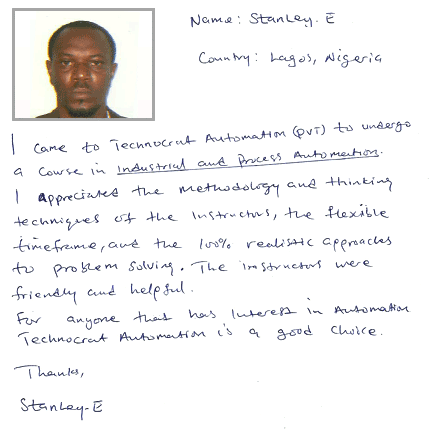 Name: Stanley. E
Country: Lagos, Nigeria
I came to Technocrat Automation (PVT) to undergo
a course in Industrial and Process Automation.
I appreciated the methodology and thinking
techniques of the Instructors, the flexible
timeframe, and the 100% realistic approaches
to problem solving. The instructors were
friendly and helpful.
For anyone that has Interest in Automation
Technocrat Automation is a good choice.
Thanks,
Stanley-E